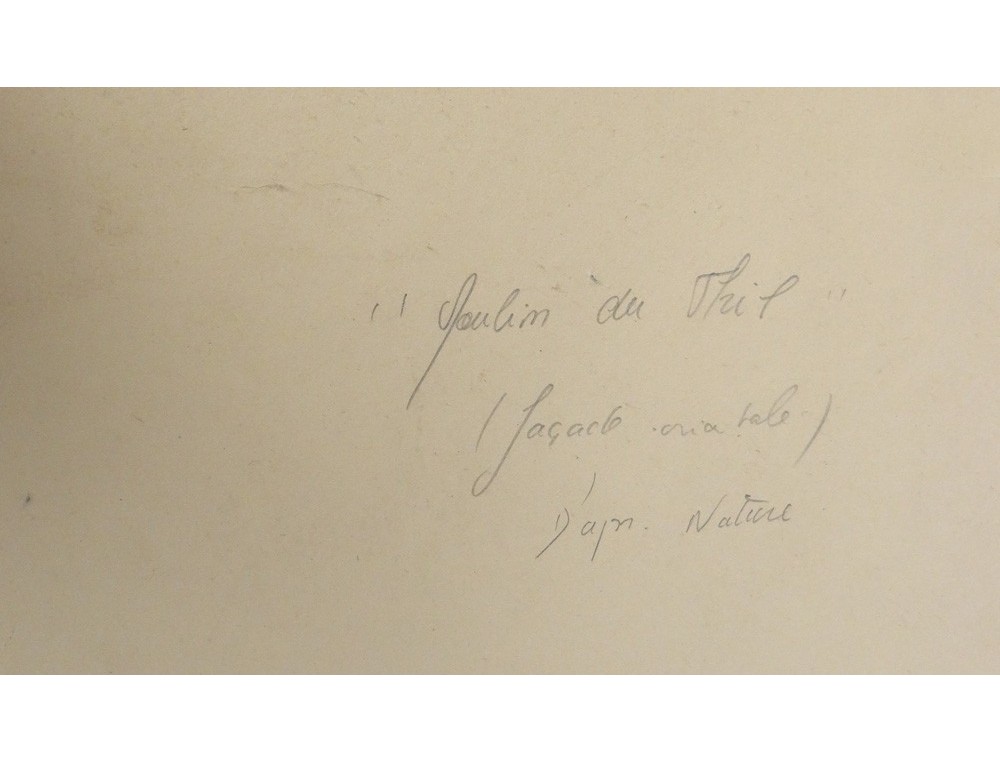 "Moulin du Thil"
(façade orientale)
D'apr. Nature